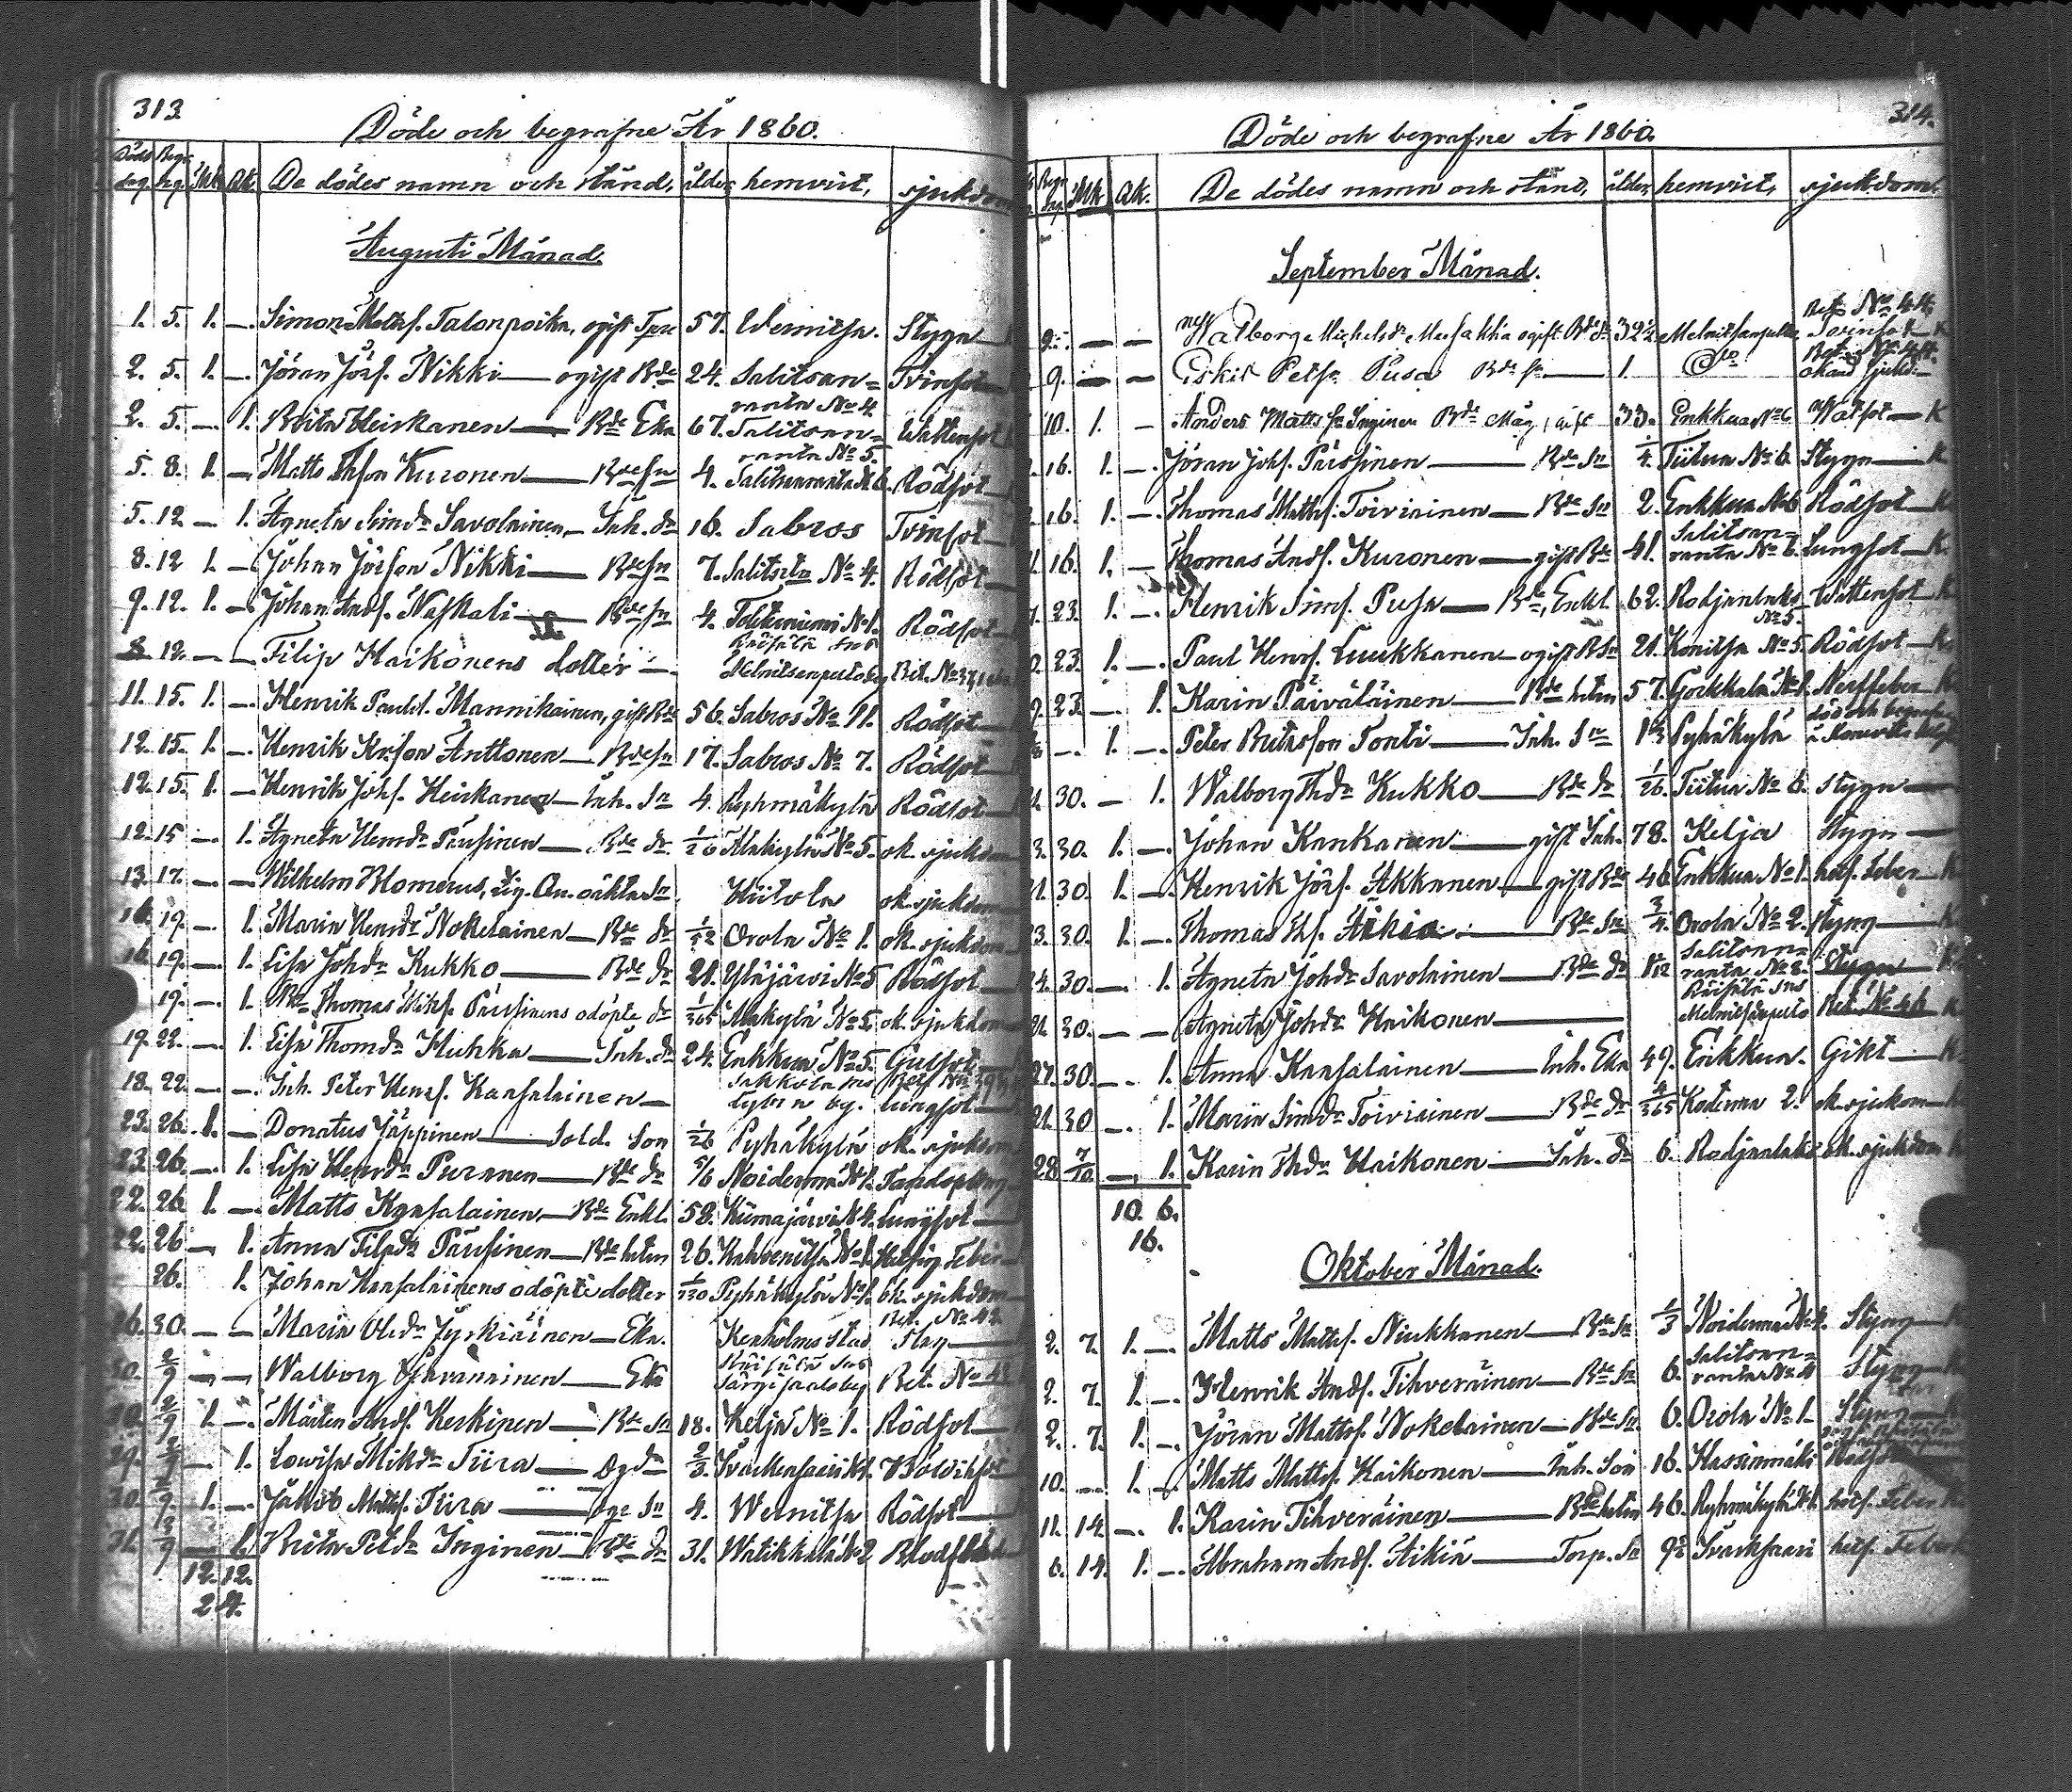 313.
Döde och begrafne År 1860.
Döds dag Begr. dag Mk. Qk. De dödes namn och stånd, ålder, hemvist, sjukdom
Augusti Månad.
1. 5. 1. — Simon Mattsf. Talonpoika, ogift 57. Wernitsa. Stygn
2. 5. 1. — Jöran Jörf. Nikki — ogift Bde 24. Salitsan= ranta No 4. Tvinsot
2. 5. — 1. Brita Heiskanen — Bde Eka 67. Salitsan= ranta No 5. Wattensot
5. 8. 1. — Matts Kuronen — Bde Sn 4. Salitsanranta N 6. Rödsot
5. 12. — 1. Agneta Simdr Savolainen — Inh. dr 16. Sabros Tvinsot
8. 12 1. — Johan Jörson Nikki — Bde Sn 7. No 4. Rödsot
9. 12. 1. — Johan Andf. Naskali — Bde Sn 4. No 1. Rödsot
8 12. — — Filip Haikonens dotter — Räisälä Melnitsenpesto
11. 15. 1. — Henrik Paulsf. Mannikainen, gift Bde 56. Sabros No 11. Rödsot
12. 15. 1. — Henrik Anttonen — Bde Sn 17. Sabros No 7. Rödsot
12. 15. 1. — Henrik Johf. Heiskanen — Inh. Sn 4. Ryhmäkylä Rödsot
12. 15 — 1. Agneta Hemdr Pärssinen — Bde dr 1/26 Alakylä No 5. ok. sjukdom
13. 17. — — Wilhelm Blomerus, oäkta Sn Hiitola ok. sjukdom
16. 19. — 1. Maria Henrdr Nokelainen — Bde dr 1/52 Orola No 1. ok. sjukdom
16. 19. — 1. Lisa Johdr Kukko — Bde dr 21. Yläjärvi No 5 Rödsot
19. — 1. Bde Thomas Pärssinens odöpte dr 1/365 Alakylä No 5. ok. sjukdom
19. 22. — 1. Lisa Thomdr Hukka — Inh. dr 24. Enkkua No 5. Gulsot
18. 22. — — Inh. Peter Henrf. Kansalainen — by. Lungsot
23. 26. 1. — Donatus Jäppinen — Sold. Son 1/26 Pyhäkylä ok. sjukdom
23. 26. — 1. Lisa Henrdr Puranen — Bde dr 5/6 Noiderma N 1. Tandsprickn
22. 26 1. — Matts Kansalainen — Bde Enkl. 58. Kiimajärvi N 4. Lungsot
22. 26 — 1. Anna Filpdr Pärssinen — Bde hstru 26. No 1. Hetsig Feber
26. 1. Johan Kansalainens odöpte dotter 1/730 Pyhäkylä No 1. ok. sjukdom
26. 30. — — Maria Jyrkiäinen — Eka. Kexholms Stad Slag Bet. No 42
30. 2/9 — — Walborg — Eka Räisälä Bet. No 41
30. 2/9 1. — Mårten Andf. Keskinen — Bde Sn 18. Kelja No 1. Rödsot
29. 2/9 — 1. Lowisa Mikdr Tiira — dr 2/3. Svartensaari
30. 2/9. 1. — Jakob Mattsf. Tiira — Sn 4. Wernitsa Rödsot
31. 2/9 — 1. Brita Petdr Inginen — Bde dr 31. Watikkala N 2
12. 12.
24.
314.
Döde och begrafne År 1860.
Begr. dag Mk Qk. De dödes namn och stånd, ålder, hemvist, sjukdom.
September Månad.
9. — — Walborg Michelsdr ogift Bde dr 32 1/2. Bet. No 44. Tvinsot
9. — — Eskil Petsn Pusa Bde sn — 1. Do okänd sjukd.
10. 1. — Anders Matts Sn Inginen Bde Måg, gift 33. Enkkua No 6 Watsot — K
16. 1. — Jöran Johf. Pärssinen — Bde Sn Tiitua No 6. Styng — K
16. 1. — Thomas Mattsf. Toiviainen — Bde Sn 2. Enkkua No 6 Rödsot — K
16. 1. — Thomas Andf. Kuronen — gift Bde 41. Salitsan= ranta No 6. Lungsot — K.
23. 1. — Henrik Simf. Pusa — Bde, Enkl. 62. Rodjanlaks No 5. Wattensot — K
23. 1. — Paul Henrf. Luukkanen — ogift 21. Konitsa No 5. Rödsot — K
23. — 1. Karin Päiväläinen — Bde hstru 57. Gorkkala No 1. Nerffeber — K
— 1. — Peter Pontis — Inh. Sn Pyhäkylä
30. — 1. Walborg Thdr Kukko — Bde dr 1/26. Tiitua No 6. Styng —
30. 1. — Johan Kankanen — gift Inh. 78. Kelja Styng —
30 1. — Henrik Jörf. Akkanen — gift Bde 46 Enkkua No 1. hets. Feber — K
23. 30. 1. — Thomas Thf. Äikiä — Bde Sn 3/4. Orola No 2. Styng — K
24. 30. — 1. Agneta Johdr Savolainen — Bde dr Salitsan= ranta No 8. Styng — K
21. 30. — — Agneta Johdr Haikonen — Räisälä Bet. No 46 K
27. 30. — 1. Anna Kansalainen — Inh. Eka 49. Enkkua. Gikt — K
21. 30 — 1. Maria Simdr Toiviainen — Bde dr Koterma 2. ok. sjukdom — K
28 7/10 — 1. Karin Thdr Haikonen — Inh. dr 6. Rodjanlaks ok. sjukdom K
10. 6.
16.
Oktober Månad.
2. 7. 1. — Matts Mattsf. Niukkanen — Bde Sn 1/3 Noiderma No 4. Styng — K
2. 7. 1. — Henrik Andf. Tihveräinen — Bde Sn 6. Salitsan= ranta No 4 Styng — K
2. 7. 1. — Jöran Mattsf. Nokelainen — Bde Sn. 6. Orola No 1. Styng — K
10. — 1. — Matts Mattsf. Haikonen — Inh. Son 16. Kassinmäki Rödsot
11. 14. — 1. Karin Tihveräinen — Bde hstru 46. Ryhmäkylä N 1. hets. Feber K
6. 14. 1. — Abraham Andf. Äikiä — Torp. Sn 9 1/2 Svartsaari hets. Feber K